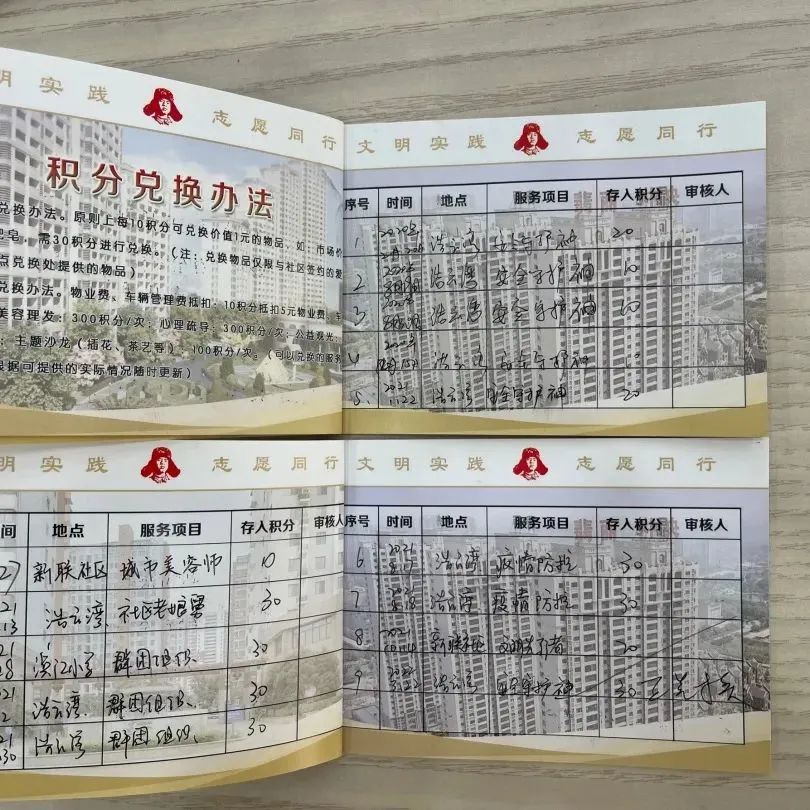 明 实 践 志 愿 同 行
积分兑换办法
兑换办法。原则上每10积分可兑换价值1元的物品,如:市场价
皂,需30积分进行兑换。(注:兑换物品仅限与社区签约的爱
点兑换处提供的物品)
兑换办法。物业费、车辆管理费抵扣:10积分抵扣5元物业费、车
美容理发:300积分/次;心理疏导:300积分/次;公益观光:
:主题沙龙(插花、茶艺等):100积分/次。(可以兑换的服务
根据可提供的实际情况随时更新)
文 明 实 践 志 愿 同 行
序号 时间 地点 服务项目 存入积分 审核人
1 浩云湾 安全守护神 20
2 浩云湾 安全守护神 10
3 浩云湾 安全守护神 10
4 浩云湾 安全守护神 10
5 2021 11.22 浩云湾 安全守护神 20
明 实 践 志 愿 同 行
间 地点 服务项目 存入积分 审核人
27 新联社区 城市美容师 10
21 13 浩云湾 社区老娘舅 30
21 8 滨江小学 群团组织 30
21 2 浩云湾 群团组织 30
21 30 浩云湾 群团组织 30
文 明 实 践 志 愿 同 行
序号 时间 地点 服务项目 存入积分 审核人
6 2021 浩云湾 疫情防控 30
7 2021 浩云湾 疫情防控 30
8 2021 新联社区 文明引者 20
9 浩云湾 安全守护神 30